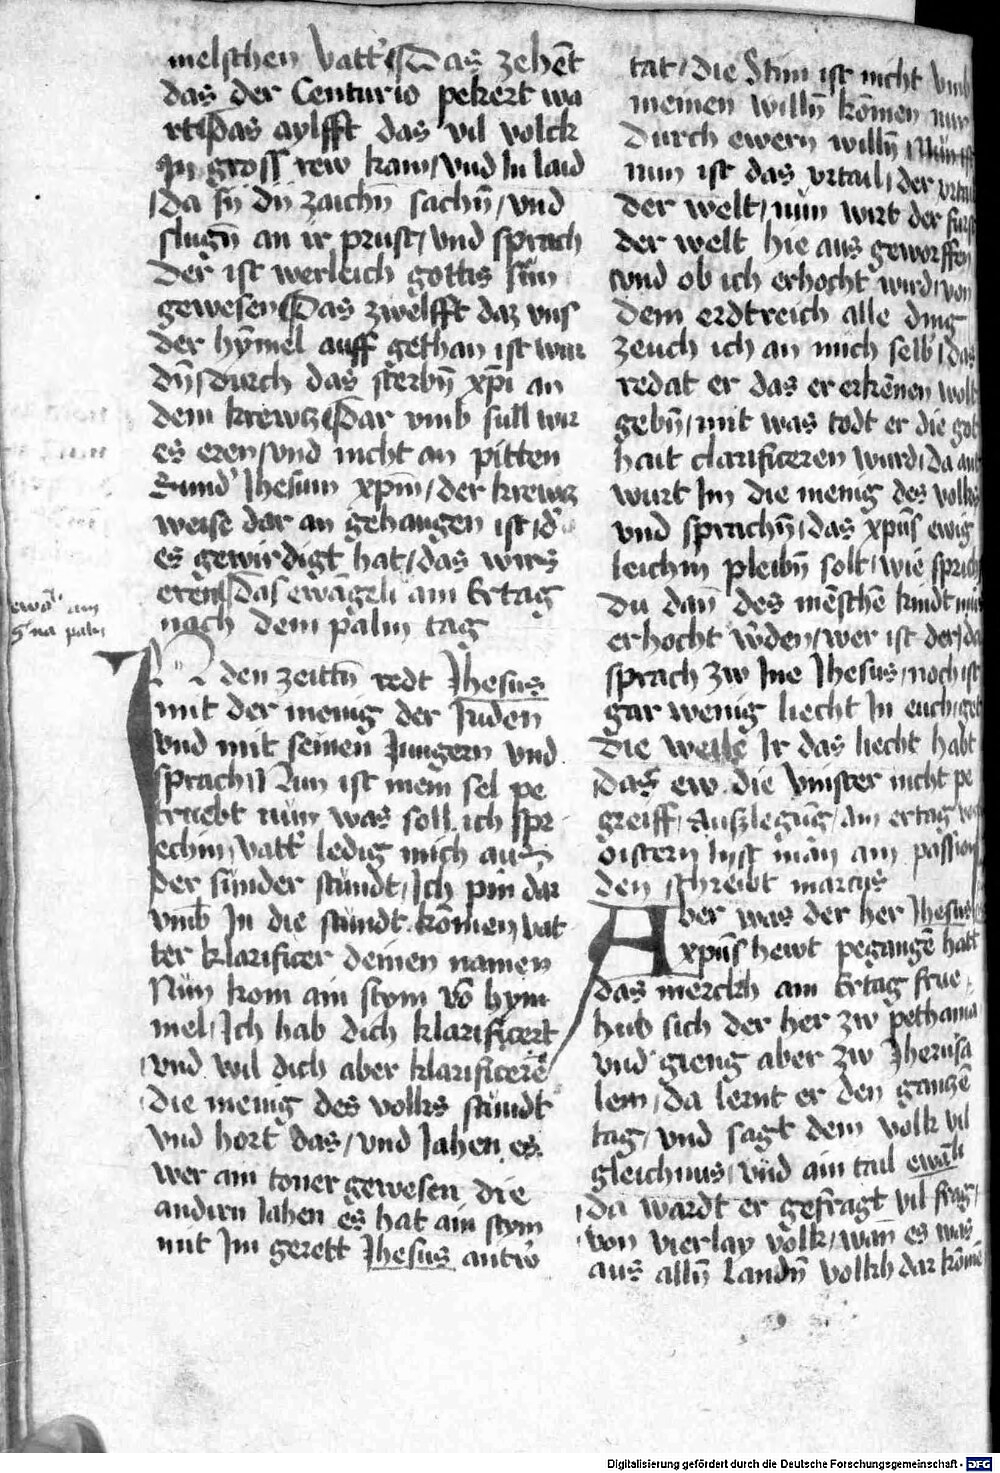 melschen vatt' Das zehēt
das der Centurio pekert wa
rt Das aylfft das vil volck
In gross rew kam / vnd In laid
da sy dy zaichñ sachñ / vnd
slugñ an ir prust / vnd sprach
der ist werleich gottis sun
gewesen Das zwelfft daz vns
der hȳmel auff gethan ist wur
dñ durch das sterbñ xp̄i an
dem krewtz Dar vmb sull wir
es eren / vnd nicht an pitten
Sund' Ihesum xp̄m / der krewtz
weise dar an gehangen ist / d'
es gewirdigt hat / das wirs
eren Das ewāgeli am Ertag
nach dem palm tag
ewā' am
g na palm
IN den zeittñ redt Ihesus
mit der menig der Juden
vnd mit seinen Jungern vnd
sprach Nun ist mein sel pe
truebt nün was soll ich spr
echin vatt' ledig mich aus
der sünder stündt / Ich pin dar
vmb In die stündt kōmen vat
ter klarificer deinen namen
Nün kom ain stym vō hym
mel / Ich hab dich klarificert
vnd wil dich aber klarificerē
die menig des volks stündt
vnd hort das / vnd Iahen es
wer ain toner gewesen die
andirn Iahen es hat ain stym
mit Im gerett Ihesus antw
tat / die Stim ist nicht vmb
meinen willñ kōmen nur
durch ewern willñ
nun ist das vrtail / der vrtail
der welt / nün wirt der furst
der welt hie aus geworffen
vnd ob ich erhocht wird / von
dem erdtreich alle ding
zeuch ich an mich selb' / das
redat er das er erkēnen wolt
gebñ / mit was todt er die got
hait clarificeren wurd / da ant
wurt Im die menig des volks
vnd sprachñ / das xp̄us ewig
leichin pleibñ solt / wie sprich
du dañ des mēschē kindt mus
erhocht w'den / wer ist der / da
sprach zw Ine Ihesus / noch ist
gar wenig liecht In euch / get
die weile Ir das liecht habt
das ew die vinster nicht pe
greiff / Auszlegūg / am ertag vor
oistern list mān am passion
den schreibt marcus
Aber was der her Ihesus
xp̄us hewt pegangē hatt
das merckh am Ertag frue
hub sich der her zw pethania
vnd gieng aber zw Iherusa
lem / da lernt er den ganczē
tag / vnd sagt dem volk vil
gleichnus / vnd ain tail ewāli
da wardt er gefragt vil frag
von vierlay volk / wañ es was
aus allñ Landñ volkh dar kōmē
Digitalisierung gefördert durch die Deutsche Forschungsgemeinschaft - DFG